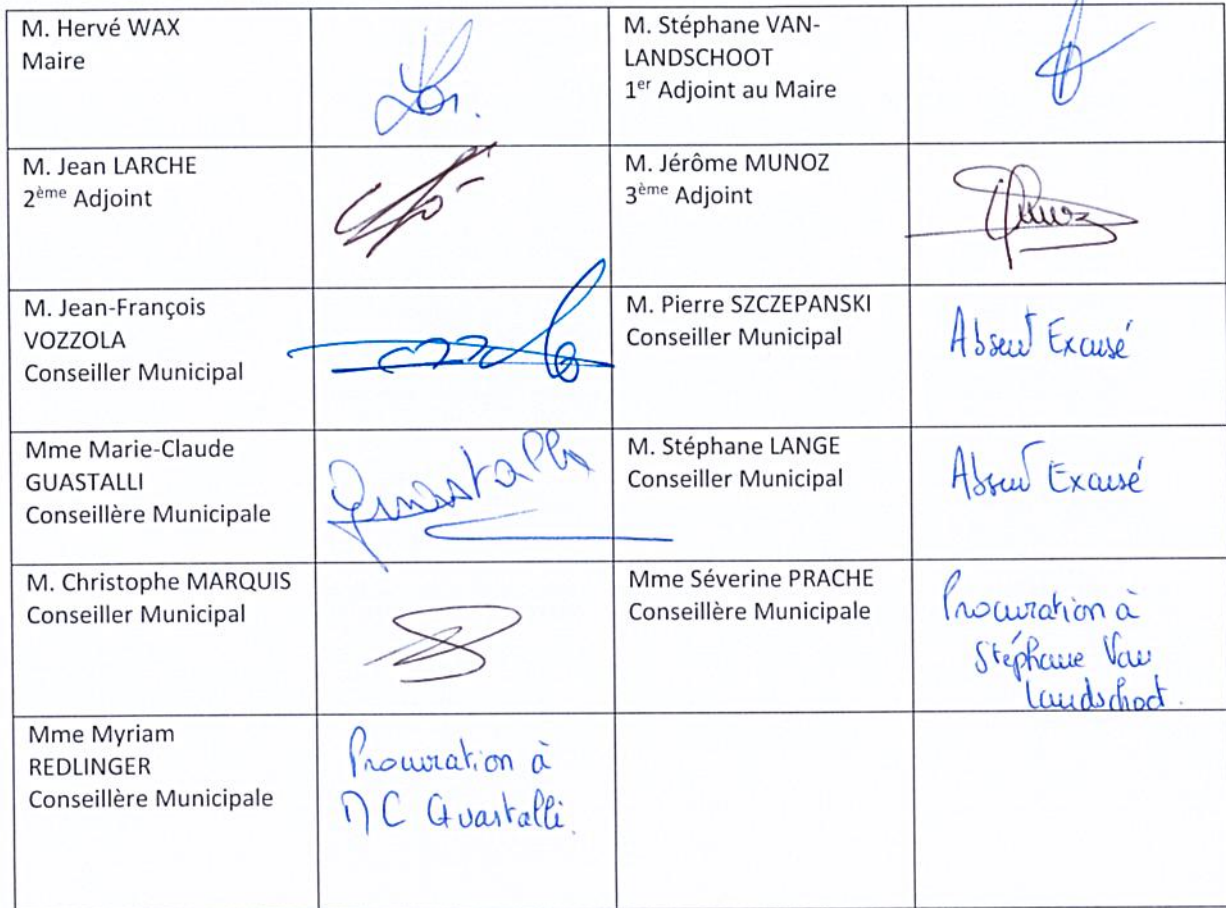 M. Hervé WAX
Maire
M. Stéphane VAN-
LANDSCHOOT
1er Adjoint au Maire
M. Jean LARCHE
2ème Adjoint
M. Jérôme MUNOZ
3ème Adjoint
M. Jean-François
VOZZOLA
Conseiller Municipal
M. Pierre SZCZEPANSKI
Conseiller Municipal
Absent Excusé
Mme Marie-Claude
GUASTALLI
Conseillère Municipale
Guastalli
M. Stéphane LANGE
Conseiller Municipal
Absent Excusé
M. Christophe MARQUIS
Conseiller Municipal
Mme Séverine PRACHE
Conseillère Municipale
Procuration à
Stéphane Van
Landschoot.
Mme Myriam
REDLINGER
Conseillère Municipale
Procuration à
MC Guastalli.